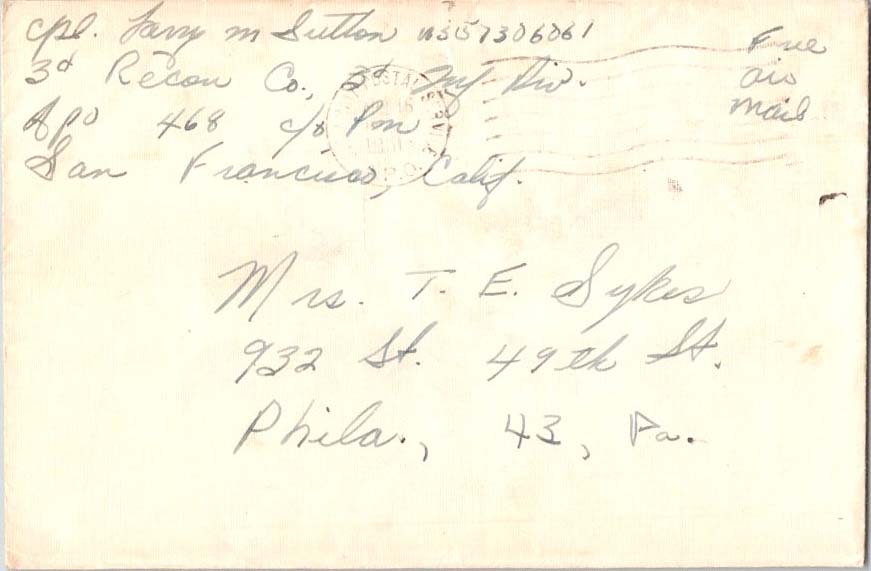 Cpl. Larry M Sutton US57306061
3d Recon Co., 3d Inf Div.
Apo 468 c/o Pm
San Francisco, Calif.
Free
air
mail
Mrs. T. E. Sykes
932 St. 49th St.
Phila., 43, Pa.